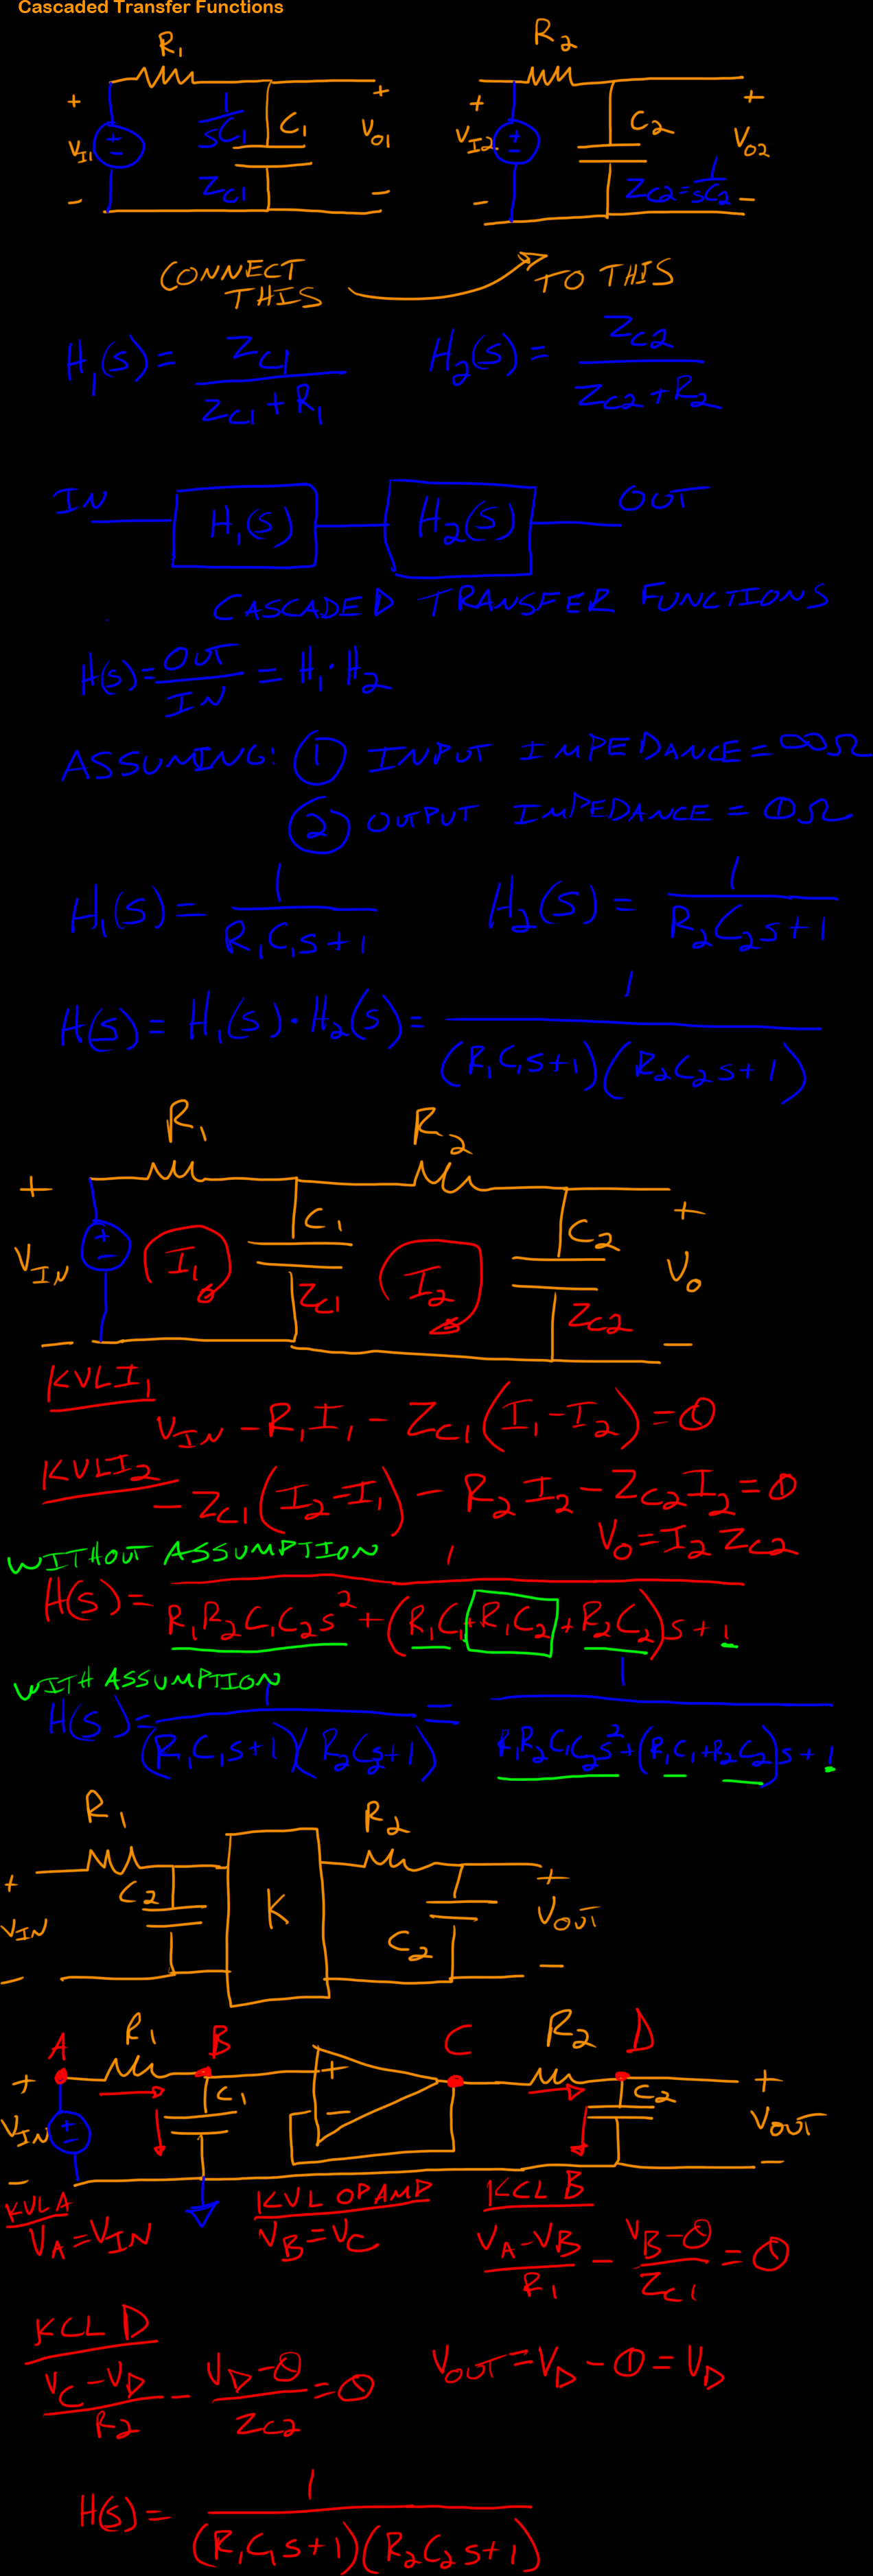 Cascaded Transfer Functions
R1 R2
+ 1/sC1 C1 + + C2 +
VI1 + − VO1 VI2 + − VO2
− ZC1 − − ZC2 = 1/sC2 −
CONNECT THIS TO THIS
H1(s) = ZC1/(ZC1 + R1) H2(s) = ZC2/(ZC2 + R2)
IN H1(s) H2(s) OUT
CASCADED TRANSFER FUNCTIONS
H(s) = OUT/IN = H1 · H2
ASSUMING: 1 INPUT IMPEDANCE = ∞Ω
2 OUTPUT IMPEDANCE = 0Ω
H1(s) = 1/(R1C1s + 1) H2(s) = 1/(R2C2s + 1)
H(s) = H1(s) · H2(s) = 1/((R1C1s + 1)(R2C2s + 1))
R1 R2
+ C1 C2 +
VIN + − I1 ZC1 I2 ZC2 Vo
− −
KVL I1
VIN − R1I1 − ZC1(I1 − I2) = 0
KVL I2
− ZC1(I2 − I1) − R2I2 − ZC2I2 = 0
Vo = I2 ZC2
WITHOUT ASSUMPTION
H(s) = 1/(R1R2C1C2s² + (R1C1 + R1C2 + R2C2)s + 1)
WITH ASSUMPTION
H(s) = 1/((R1C1s + 1)(R2C2s + 1)) = 1/(R1R2C1C2s² + (R1C1 + R2C2)s + 1)
R1 R2
+ C2 K C2 +
VIN VOUT
− −
A R1 B C R2 D
+ C1 + − C2 +
VIN + − VOUT
− −
KVL A KVL OPAMP KCL B
VA = VIN VB = VC (VA − VB)/R1 − (VB − 0)/ZC1 = 0
KCL D
(VC − VD)/R2 − (VD − 0)/ZC2 = 0 VOUT = VD − 0 = VD
H(s) = 1/((R1C1s + 1)(R2C2s + 1))